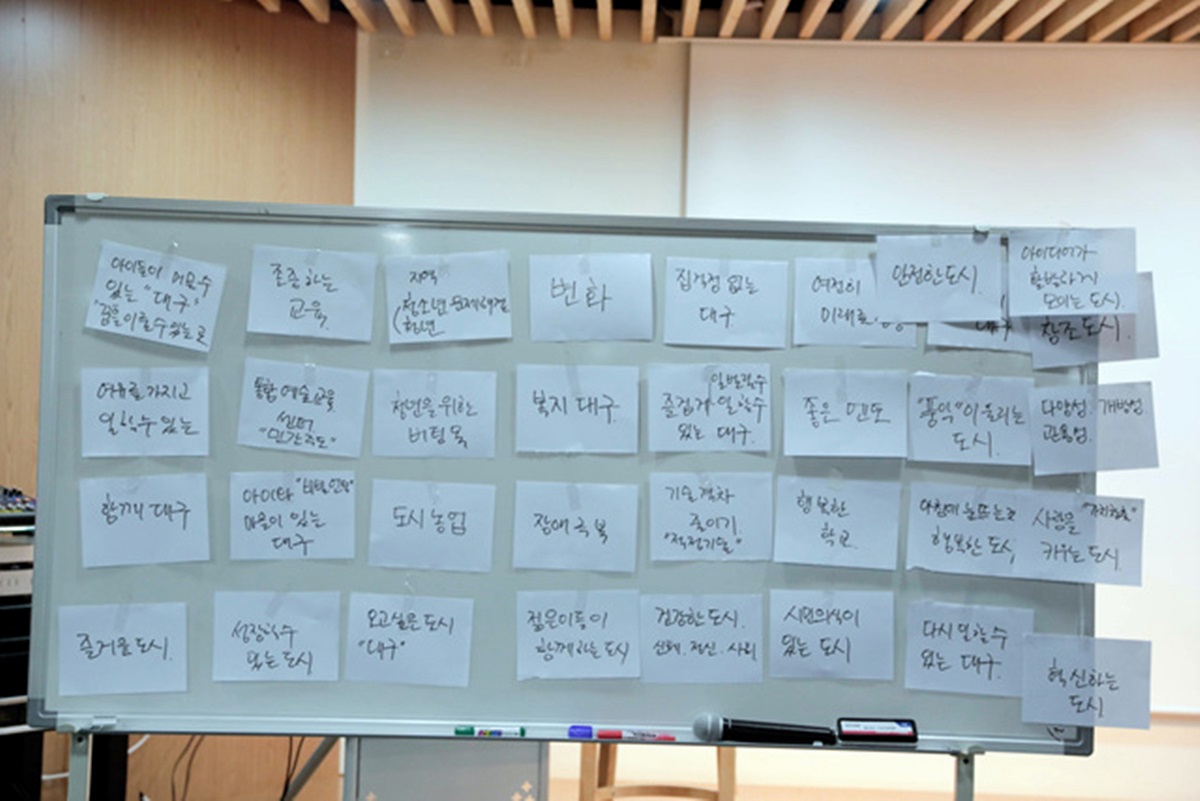 아이들이 머무를수
있는 "대구"
꿈을 이룰수 있는 곳
존중하는
교육.
지역
(청소년 문제해결
청년
변화
집걱정 없는
대구.
여전히
미래로
안전한도시.
대구
아이디어가
활발하게
모이는 도시.
창조 도시.
여유를 가지고
일할수 있는
통합 예술교육
센터
"민간주도"
청년을 위한
버팀목
복지 대구.
일벌릴수
즐겁게 일할수
있는 대구.
좋은 멘토
"풍악"이 울리는
도시.
다양성. 개방성.
관용성.
함께 대구
아이타
마음이 있는
대구
도시농업
장애 극복
기술격차
줄이기
"적정기술"
행복한
학교.
아침에 눈뜨는것
행복한 도시
사람을
키우는 도시.
즐거운 도시.
성장할수
있는 도시
오고싶은 도시
"대구"
젊은이들이
함께하는 도시
건강한 도시.
신체. 정신. 사회
시민의식이
있는 도시
다시 일할수
있는 대구.
혁신하는
도시